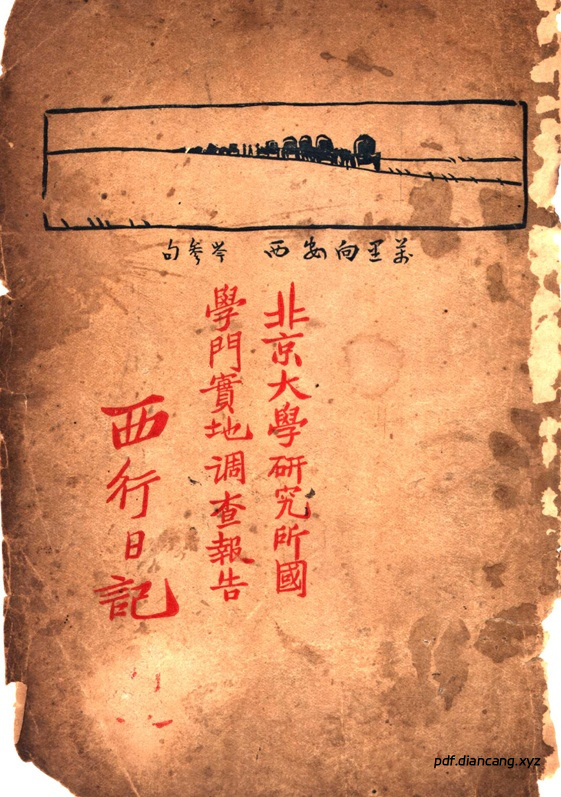 萬里向安西 岑參句
北京大學研究所國
學門實地调查報告
西行日記
pdf.diancang.xyz